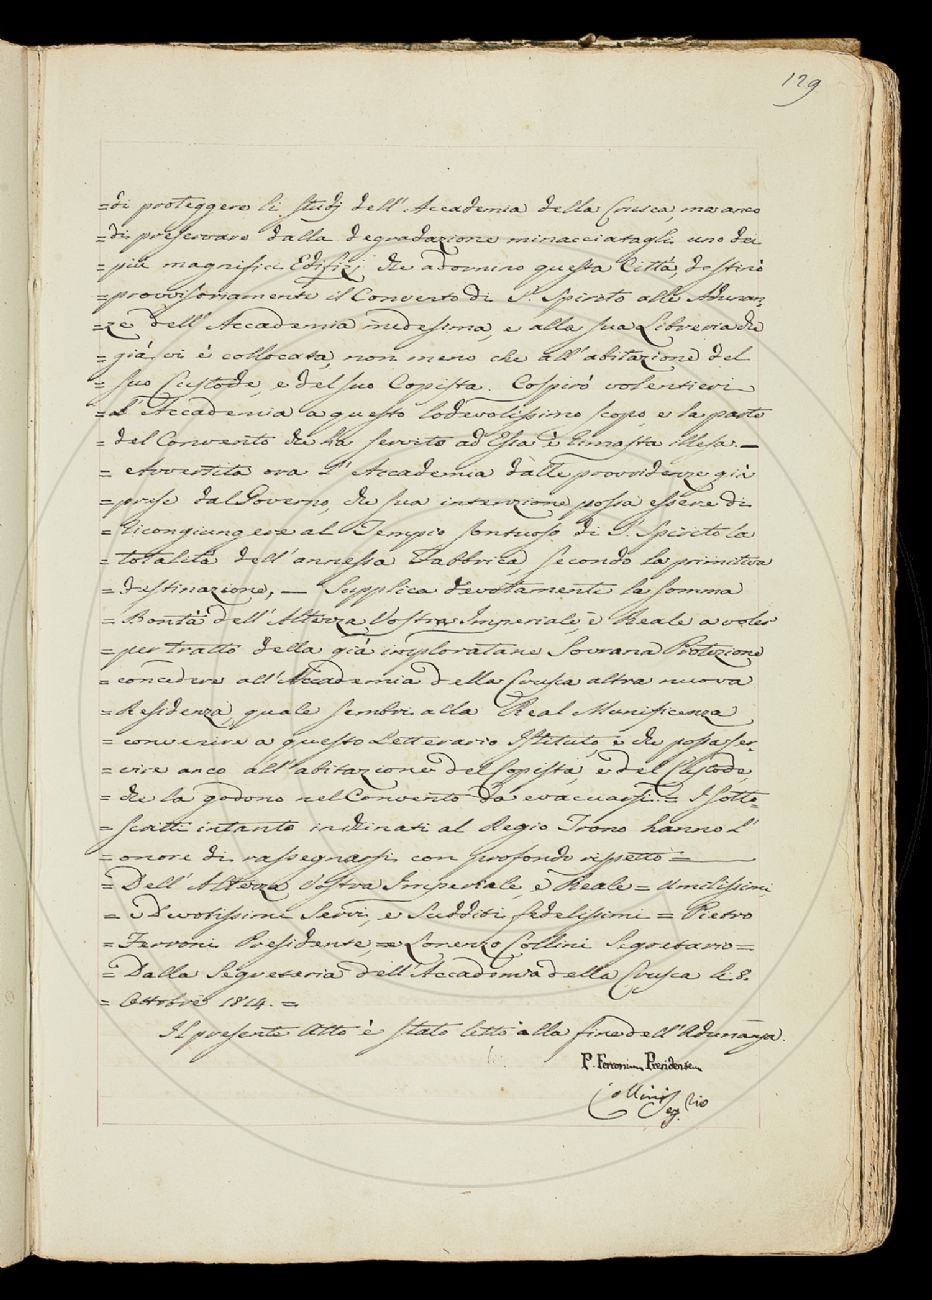 129
=di proteggere li Studj dell'Accademia della Crusca ma anco
=di preservare dalla degradazione minacciatagli uno dei
=più magnifici Edifizj, che adornino questa Città, destinò
=provvisoriamente il Convento di S. Spirito alle Adunan,
=ze dell'Accademia medesima, e alla sua Libreria che
=già vi è collocata, non meno che all'abitazione del
=suo Custode, e del suo Copista. Cospirò volentieri
=l'Accademia a questo lodevolissimo scopo, e la parte
=del Convento che ha servito ad Essa è rimasta illesa. —
=Avvertita ora l'Accademia dalle provvidenze già
=prese dal Governo, che sua intenzione possa essere di
=ricongiungere al Tempio sontuoso di S. Spirito la
=totalità dell'annessa Fabbrica secondo la primitiva
=destinazione, — Supplica devotamente la somma
=Bontà dell'Altezza Vostra Imperiale, e Reale a voler
=per tratto della già imploratane Sovrana Protezione
=concedere all'Accademia della Crusca altra nuova
=Residenza, quale sembri alla Real Munificenza
=convenire a questo Letterario Istituto, e che possa ser,
=vire anco all'abitazione del Copista, e del Custode,
=che la godono nel Convento da evacuarsi. = I sotto=
=scritti intanto inchinati al Regio Trono hanno l'
=onore di rassegnarsi con profondo rispetto =
=Dell'Altezza Vostra Imperiale, e Reale = Umilissimi,
=Devotissimi Servi, e Sudditi fedelissimi = Pietro
=Ferroni Presidente, = Lorenzo Collini Segretario =
=Dalla Segreteria dell'Accademia della Crusca li 8.
=Ottobre 1814. =
Il presente Atto è stato letto alla fine dell'Adunanza.
P. Ferroni Presidente
Collini Seg.rio